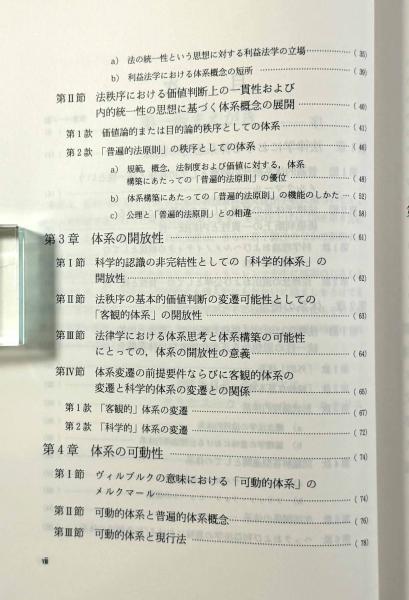 a) 法の統一性という思想に対する利益法学の立場……………( 35)
b) 利益法学における体系概念の短所 ……………( 39)
第Ⅱ節 法秩序における価値判断上の一貫性および
内的統一性の思想に基づく体系概念の展開……………( 40)
第1款 価値論的または目的論的秩序としての体系……………( 41)
第2款 「普遍的法原則」の秩序としての体系……………( 46)
a) 規範,概念,法制度および価値に対する,体系
構築にあたっての「普遍的法原則」の優位……………( 48)
b) 体系構築にあたっての「普遍的法原則」の機能のしかた…( 52)
c) 公理と「普遍的法原則」との相違……………( 58)
第3章 体系の開放性……………( 61)
第Ⅰ節 科学的認識の非完結性としての「科学的体系」の
開放性……………( 62)
第Ⅱ節 法秩序の基本的価値判断の変遷可能性としての
「客観的体系」の開放性……………( 63)
第Ⅲ節 法律学における体系思考と体系構築の可能性
にとっての,体系の開放性の意義……………( 64)
第Ⅳ節 体系変遷の前提要件ならびに客観的体系の
変遷と科学的体系の変遷との関係……………( 65)
第1款 「客観的」体系の変遷……………( 67)
第2款 「科学的」体系の変遷……………( 72)
第4章 体系の可動性……………( 74)
第Ⅰ節 ヴィルブルクの意味における「可動的体系」の
メルクマール……………( 74)
第Ⅱ節 可動的体系と普遍的体系概念……………( 76)
第Ⅲ節 可動的体系と現行法……………( 78)
viii